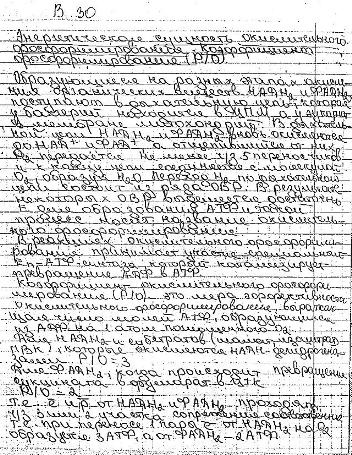 В. 30
Энергетическая сущность окислительного
фосфорилирования. Коэффициент
фосфорилирования (P/O)
Образующиеся на разных этапах окисле-
ния органических веществ НАДН2 и ФАДН2
поступают в дыхательную цепь, которая
у бактерий находится в ЦПМ, а у
в мембране митохондрий. В дыхатель-
ной цепи НАДН2 и ФАДН2 вновь окисляются
до НАД+ и ФАД+ а отщепившийся от них
передается не менее ч/з 5 переносчиков
к концу цепи соединяется с молекул.
O2 образуя H2O. Переход по дыхательной
цепи состоит из ряда ОВР. В результ.
некоторых ОВР выделяется достаточно
для образования АТФ и такой
процесс носит название окислитель-
ного фосфорилирования.
В реакциях окислительного фосфорили-
рования принимает участие
АТФ-синтетаза которая катализирует
превращение АДФ в АТФ.
Коэффициент окислительного фосфори-
лирования (P/O) - это мера эффективности
окислительного фосфорилирования, выражен.
число молей АТФ, образующихся
из АДФ на 1 атом поглощенного O2.
Для НАДН2 и субстратов (малат, изоцитрат,
ПВК), которые окисляются НАДН-дегидроге-
P/O = 3
Для ФАДН2, когда происходит превращение
сукцината в фумарат в ЦТК
P/O = 2
Т.е. от НАДН2 и ФАДН2 проходят
ч/з 3 или 2 участка сопряжения соответственно
т.е. при переносе 1 пары е от НАДН2 на O2
образуется 3 АТФ, а от ФАДН2 - 2 АТФ.